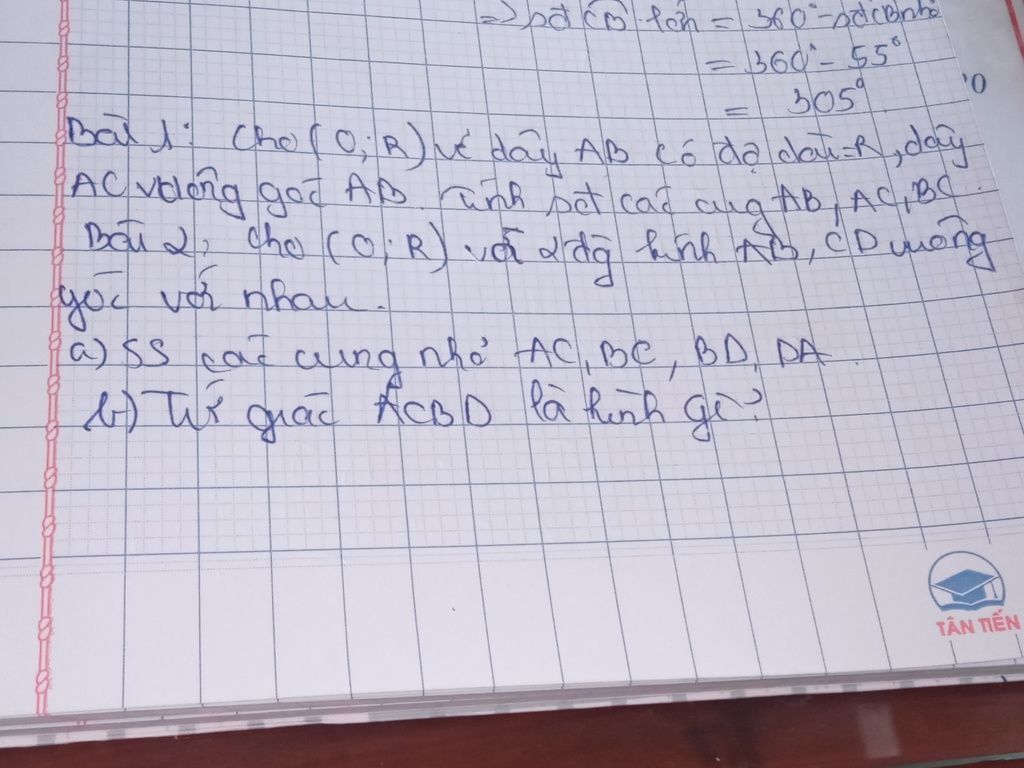 => sđ CB lớn = 360° - sđ CB nhỏ
= 360° - 55°
= 305°
Bài 1: Cho (O; R) vẽ dây AB có độ dài = R, dây
AC vuông góc AB. Tính sđ các cung AB, AC, BC.
Bài 2: Cho (O; R) với 2 đg kính AB, CD vuông
góc với nhau.
a) SS các cung nhỏ AC, BC, BD, DA.
b) Tứ giác ACBD là hình gì?
TÂN TIẾN